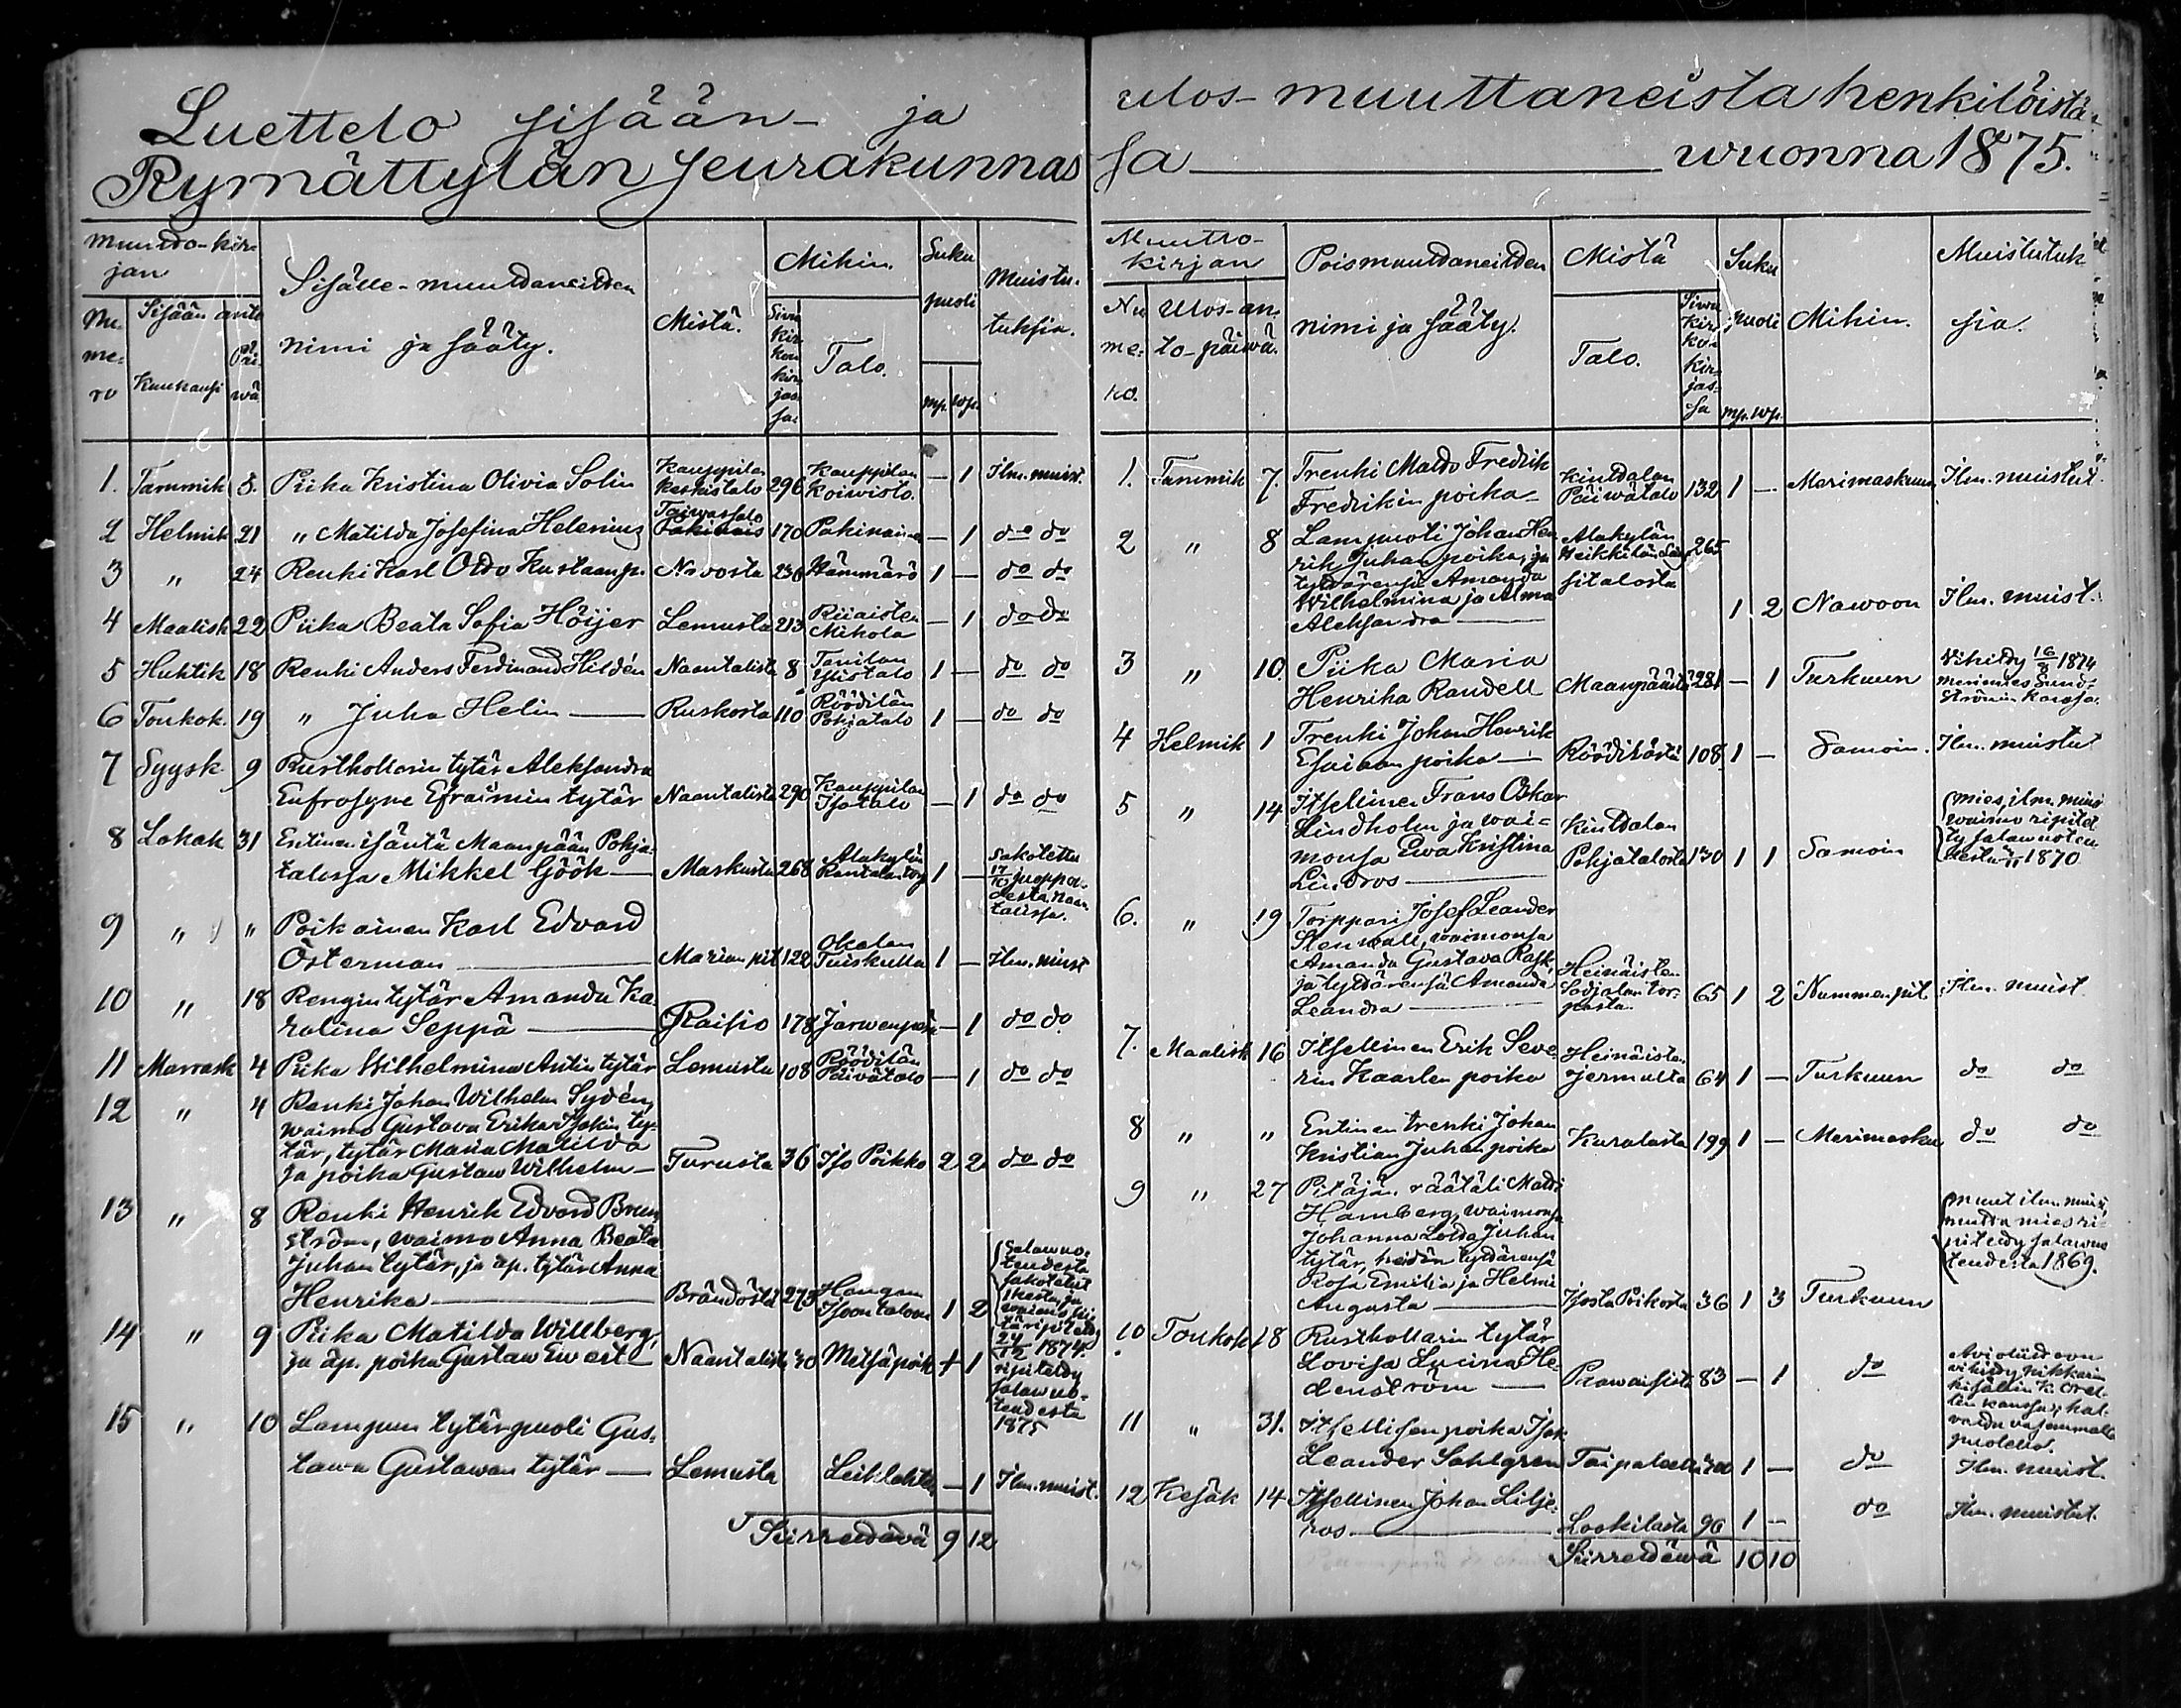 Luettelo sisään- ja
Rymättylän seurakunnas
Muutto-kir-
jan
Nu-
me-
ro
Sisään anto
Kuukausi
Päi-
wä
Sisälle-muuttaneitten
nimi ja sääty.
Mistä.
Mihin.
Sivu
kir-
kon
kir-
jas-
sa.
Talo.
Suku
puoli
mp. wp.
Muistu-
tuksia.
1. Tammik 8. Piika Kristina Olivia Solin Kauppilan keskistalo 296 Kauppilan Koiwisto. — 1 Ilm. muist.
2 Helmik 21 " Matilda Josefina Helenius Taiwassalo 170 Pakinainen — 1 do do
3 " 24 Renki Karl Otto Kustaanp. Navosta 236 Hämmärö 1 — do do
4 Maalisk 22 Piika Beata Sofia Höijer Lemusta 213 Riiaisten Mikola — 1 do do
5 Huhtik 18 Renki Anders Ferdinand Hildén Naantalista 8 Tanilan Ylistalo 1 — do do
6 Toukok. 19 " Juha Helin — Ruskosta 110 Röödilän Pohjatalo 1 — do do
7 Syysk 9 Rusthollarin tytär Aleksandra
Eufrosyne Efraimin tytär Naantalista 290 Kauppilan Isotalo — 1 do do
8 Lokak 31 Entinen isäntä Maanpään Pohja-
talossa Mikkel Göök — Maskusta 268 Alakylän Rantalan torp 1 — Sakotettu
17/10 juoppo-
desta Naan-
talissa.
9 " " Poikainen Karl Edvard
Österman — Marian pit 122 Okalan Tuiskulla 1 — Ilm. muist
10 " 18 Rengin tytär Amanda Ka-
rolina Seppä — Raisio 178 Järwenpää — 1 do do
11 Marrask 4 Piika Wilhelmina Antin tytär Lemusta 108 Röödilän Päivätalo — 1 do do
12 " 4 Renki Johan Wilhelm Sydén,
waimo Gustava Erika Isakin ty-
tär, tytär Maria Matilda
ja poika Gustaw Wilhelm — Turusta 36 Iso Poikko 2 2 do do
13 " 8 Renki Henrik Edvard Brun-
ström, waimo Anna Beata
Juhan tytär, ja äp. tytär Anna
Henrika — Brändöstä 273 Hangan Isoon taloon 1 2
Salawuo-
teudesta
sakotetut
1 kesta ja
waimo
14 " 9 Piika Matilda Willberg,
ja äp. poika Gustaw Ewert — Naantalista 30 Metsäpoik 1 1 24/12 1874.
ripitetty
salawuo-
teudesta
1875
15 " 10 Lampun tytärpuoli Gus-
tawa Gustawan tytär — Lemusta Leiklahte — 1 Ilm. muist.
Siirrettävä 9 12
ulos-muuttaneista henkilöistä
sa — wuonna 1875.
Muutto-
kirjan
Nu
me-
ro.
Ulos-an-
to-päiwä.
Poismuuttaneitten
nimi ja sääty.
Mistä
Talo.
Sivu
kir-
ko-
kir-
jas-
sa
Suku
puoli
mp. wp.
Mihin.
Muistutuk
sia.
1. Tammik 7. Trenki Matts Fredrik
Fredrikin poika — Kuidalan Päiwätalo 132 1 — Merimaskuun. Ilm. muistut.
2 " 8 Lampuoti Johan Hen-
rik Juhan poika, ja
tyttärensä Amanda
Wilhelmina ja Alma
Aleksandra — Alakylän Heikkilän Säy- sitalosta 265 1 2 Nawoon Ilm. muist.
3 " 10 Piika Maria
Henrika Randell Maanpäästä 281 — 1 Turkuun Wihitty 16/8 1874
merimies Sund-
strömin kanssa.
4 Helmik 1 Trenki Johan Henrik
Esaiaan poika — Röödilästä 108 1 — Samoin. Ilm. muistut
5 " 14 Itsellinen Frans Oskar
Lindholm ja wai-
monsa Ewa Kristina
Lindros — Kuidalan Pohjatalosta 130 1 1 Samoin mies, ilm. muist
waimo ripitet-
ty salawuoteu-
desta 1870
6. " 19 Torppari Josef Leander
Stenwall, waimonsa
Amanda Gustava Rask,
ja tyttärensä Amanda
Leandra — Heinäisten Sodjalan tor- pasta. 65 1 2 Nummen pit Ilm. muist
7. Maalisk 16 Itsellinen Erik Seve-
rin Kaarlen poika Heinäisten Jermulta 64 1 — Turkuun do do
8 " " Entinen trenki Johan
Kristian Juhan poika Kuralasta 199 1 — Merimasku do do
9 " 27 Pitäjän räätäli Matts
Hamberg, waimonsa
Johanna Lovisa Juhan
tytär, heidän tyttärensä
Rosa Emilia ja Helmi
Augusta — Isosta Poikosta 36 1 3 Turkuun muut ilm. muist,
mutta mies ri-
pitetty salawuo-
teudesta 1869.
10. Toukok 18 Rusthollarin tytär
Lovisa Lucina He-
denström — Prawaisista 83 — 1 do Avioliittoon
wihitty nikkarin
kisällin K. Orel-
lin kanssa,
puolella.
11 " 31. Itsellisen poika Isak
Leander Sahlgren Taipaleelta 300 1 — do Ilm. muist.
12 Kesäk 14 Itsellinen Johan Lilje-
ros — Loskilasta 90 1 — do Ilm. muistut.
Siirrettäwä 10 10